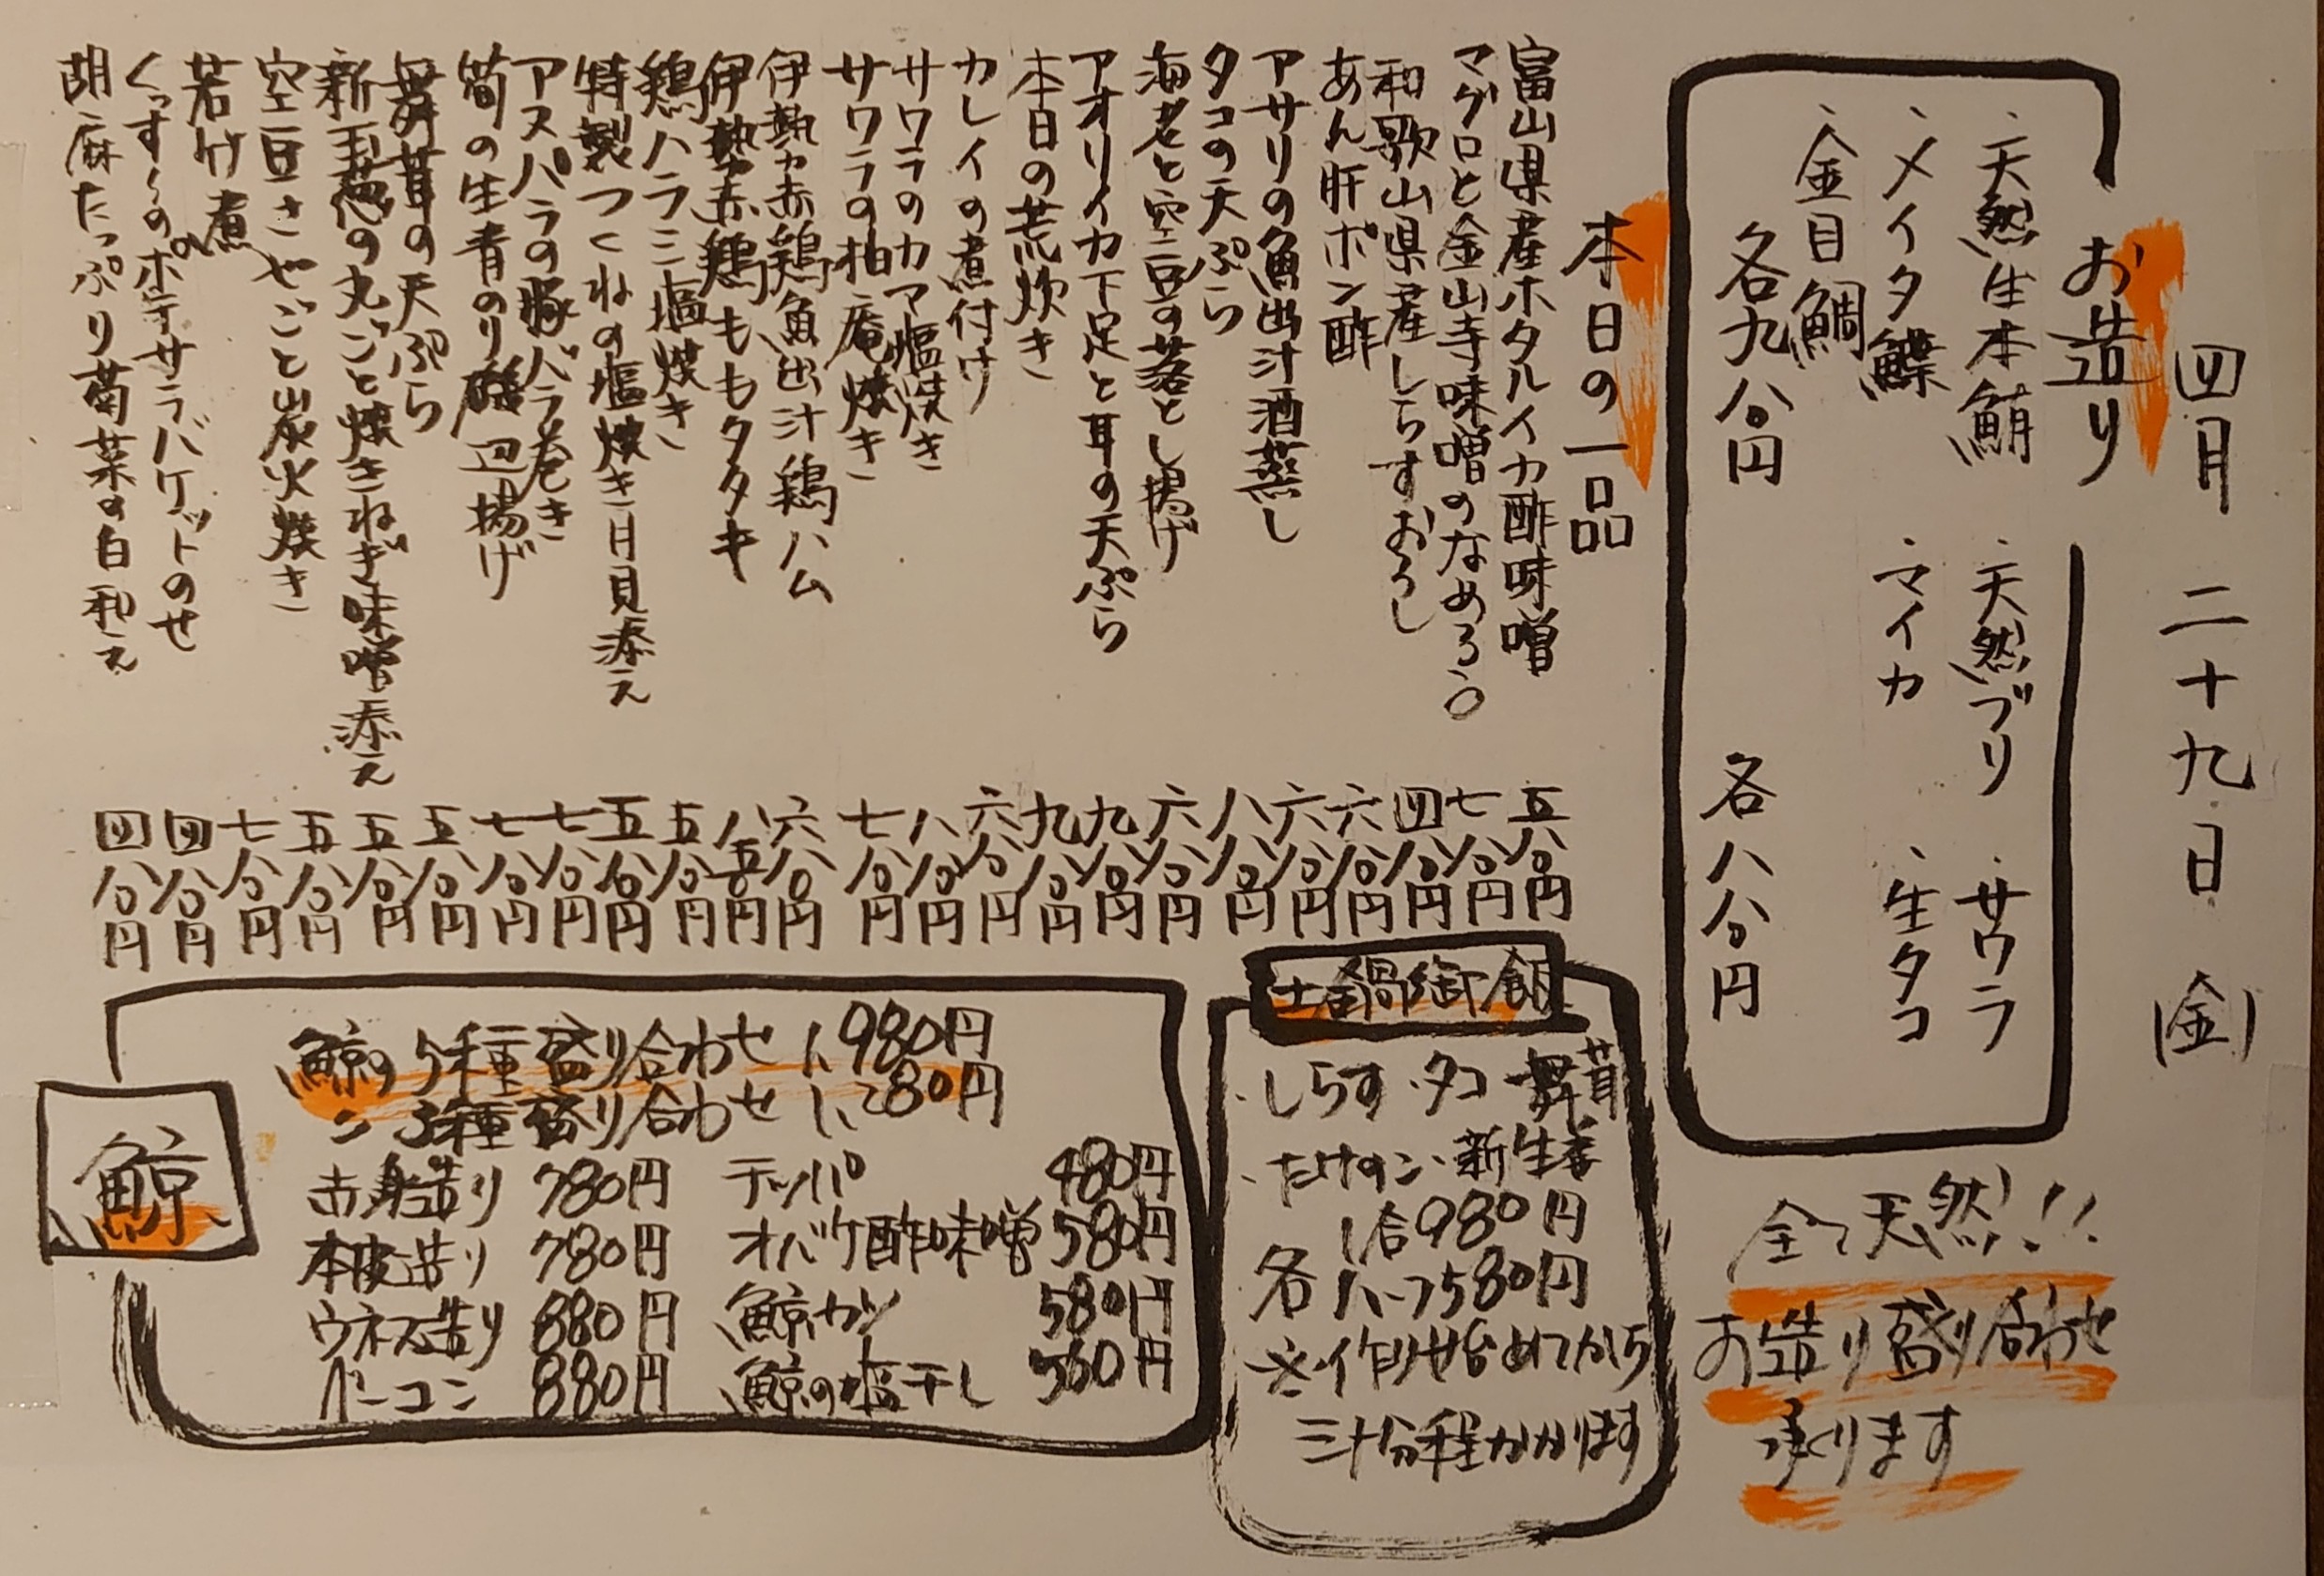 四月二十九日(金)
お造り
・天然生本鮪
・メイタ鰈
・金目鯛
各九八〇円
・天然ブリ
・マイカ
・サワラ
・生タコ
各八八〇円
全て天然!!
お造り盛り合わせ
承ります
本日の一品
富山県産ホタルイカ酢味噌 五八〇円
マグロと金山寺味噌のなめろう 七八〇円
和歌山県産しらすおろし 四八〇円
あん肝ポン酢 六八〇円
アサリの魚出汁酒蒸し 六八〇円
タコの天ぷら 八八〇円
海老と空豆の落とし揚げ 六八〇円
アオリイカ下足と耳の天ぷら 九八〇円
本日の荒炊き 九八〇円
カレイの煮付け 六八〇円
サワラのカマ塩焼き 八八〇円
サワラの柚庵焼き 七八〇円
伊勢赤鶏魚出汁鶏ハム 六八〇円
伊勢赤鶏ももタタキ 八五〇円
鶏ハラミ塩焼き 五八〇円
特製つくねの塩焼き月見添え 五八〇円
アスパラの豚バラ巻き 七八〇円
筍の生青のり磯辺揚げ 七八〇円
舞茸の天ぷら 五八〇円
新玉葱の丸ごと焼きねぎ味噌添え 五八〇円
空豆さやごと炭火焼き 五八〇円
若竹煮 七八〇円
くっすんのポテサラバケットのせ 四八〇円
胡麻たっぷり菊菜の白和え 四八〇円
土鍋御飯
・しらす・タコ・舞茸
・たけのこ・新生姜
各 1合980円
ハーフ580円
※作り始めてから
三十分程かかります
鯨
鯨の5種盛り合わせ 1,980円
〃 3種盛り合わせ 1,280円
赤身造り 780円
本皮造り 780円
ウネス造り 880円
ベーコン 880円
テッパ 480円
オバケ酢味噌 580円
鯨カツ 580円
鯨の塩干し 580円